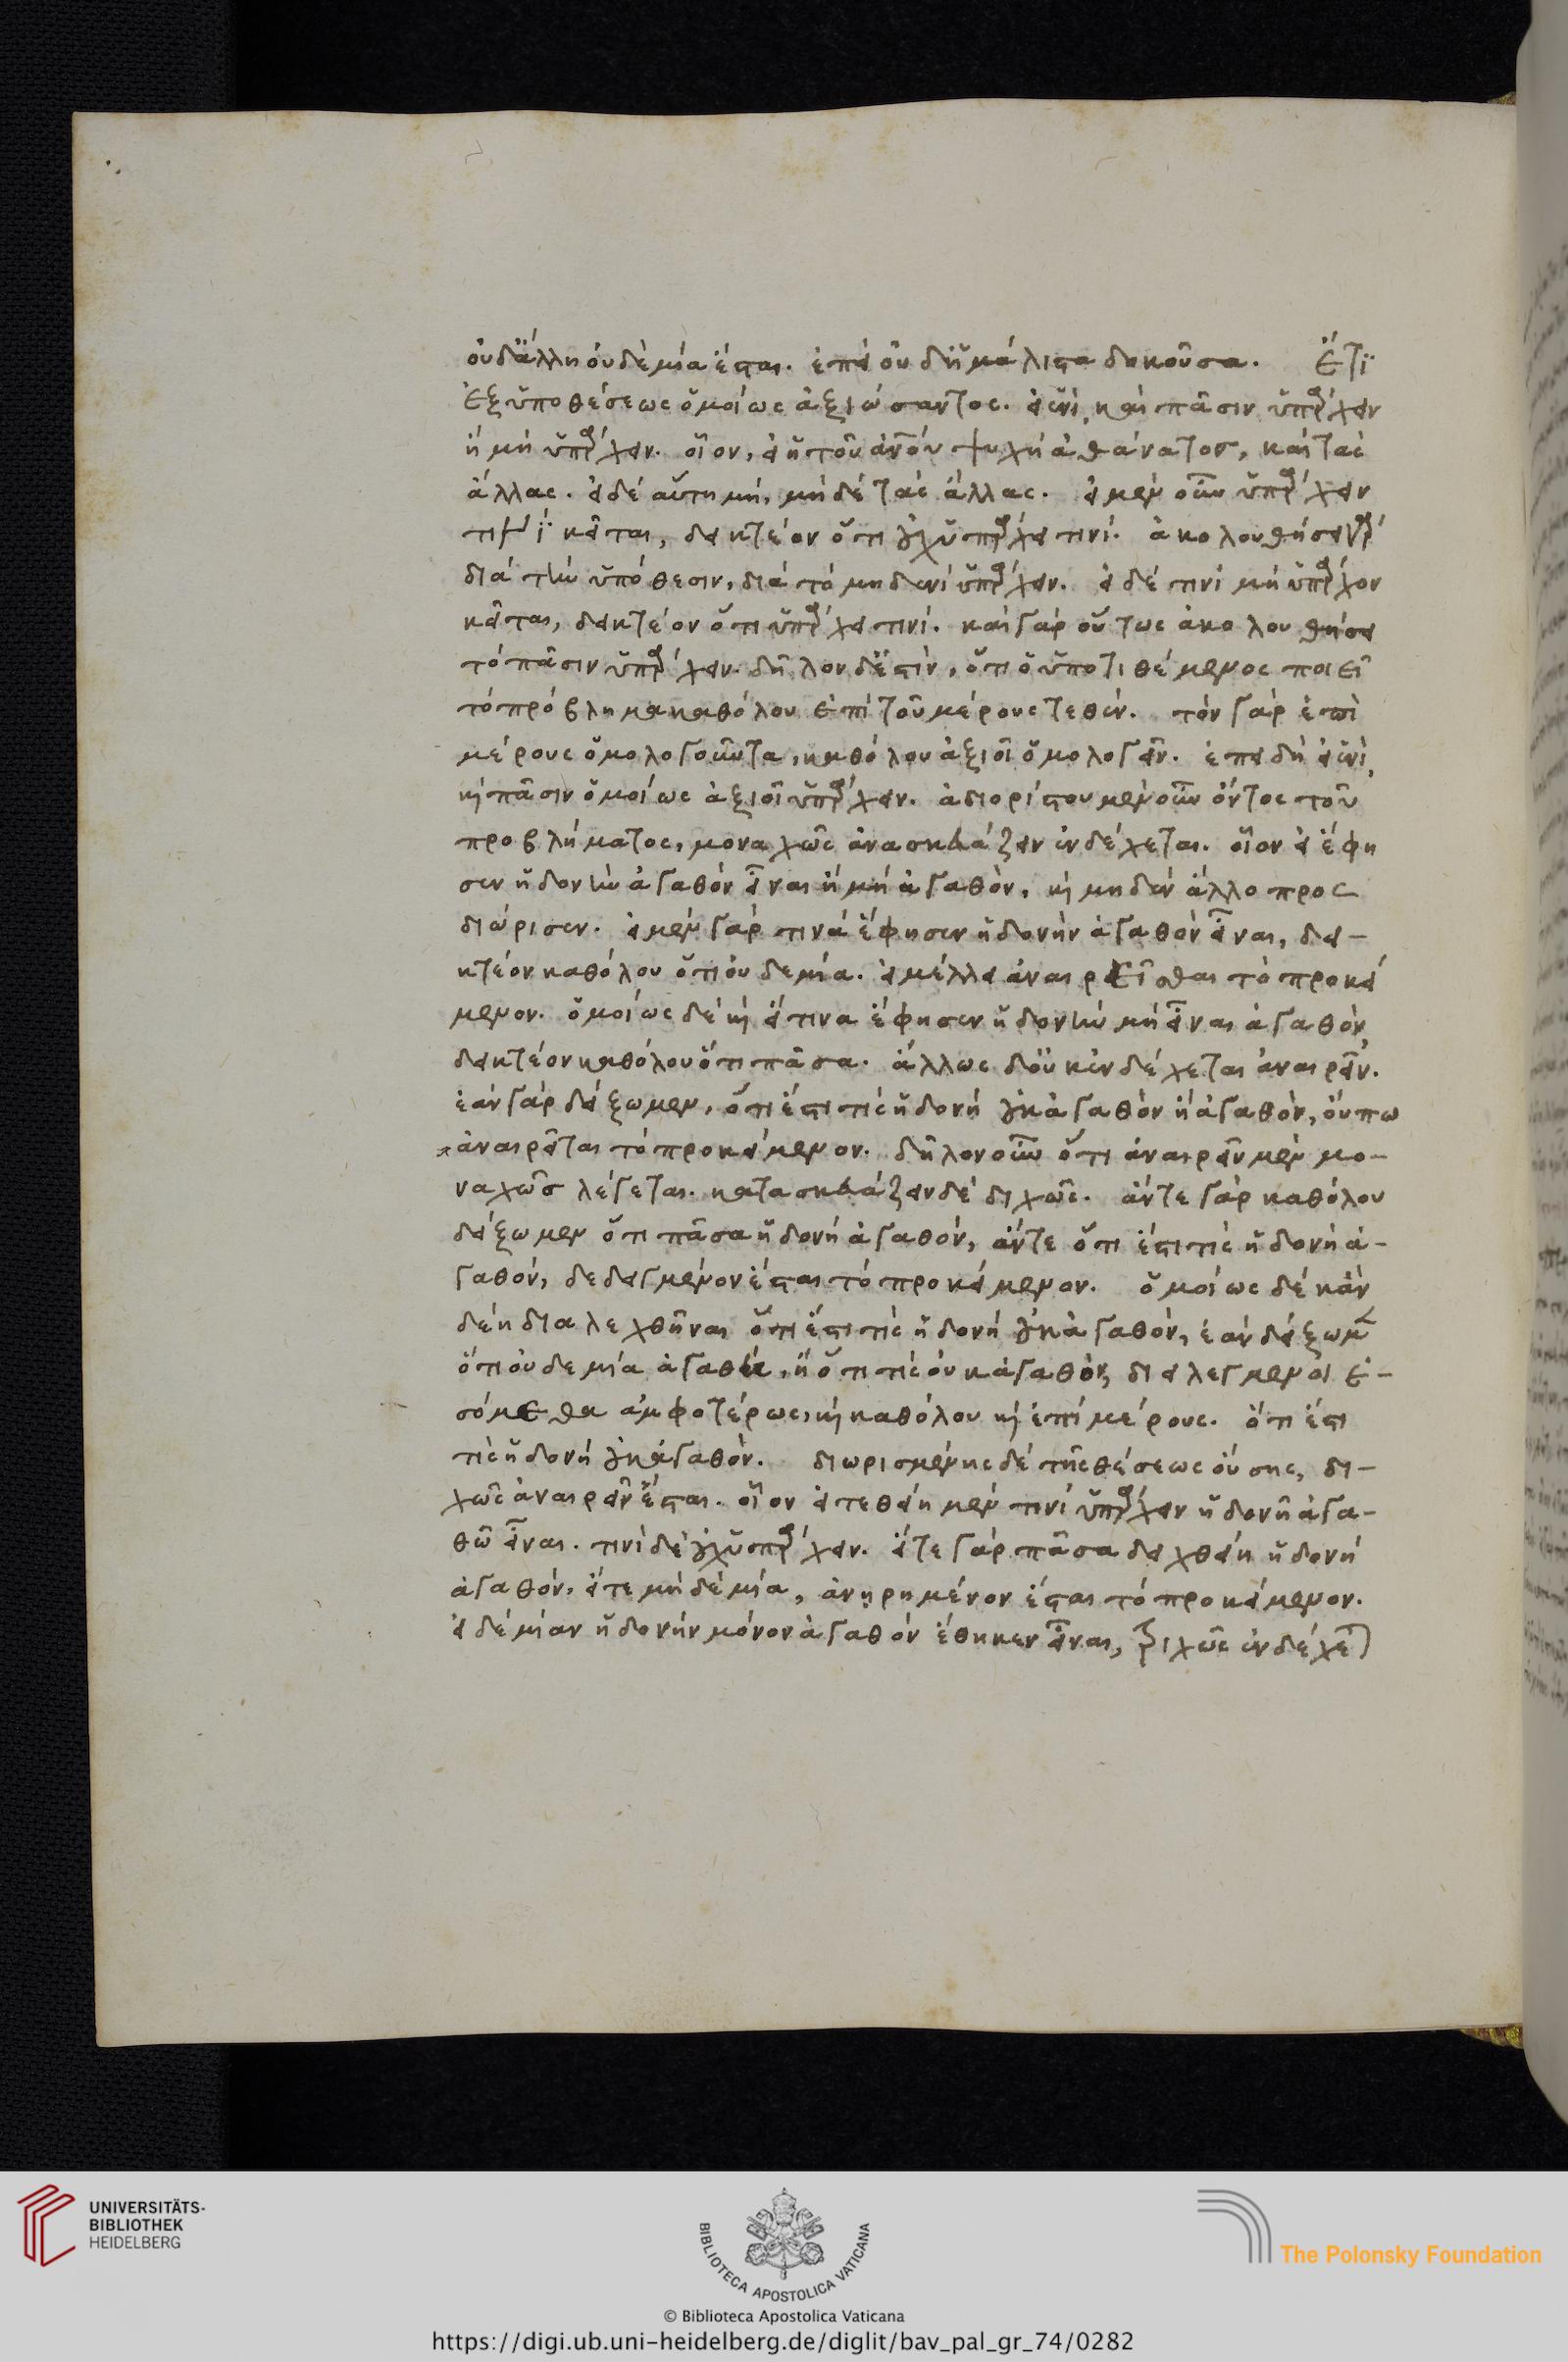 οὐδ' ἄλλη οὐδὲμία ἔσται. ἐπεὶ οὐδ' ἡ μάλιστα δοκοῦσα. Ἔτι
ἐξ ὑποθέσεως ὁμοίως ἀξιώσαντος. εἰ ἑνὶ, καὶ πᾶσιν ὑπάρχειν
ἢ μὴ ὑπάρχειν. οἷον, εἰ ἡ τοῦ ἀν̅ο̅υ ψυχὴ ἀθάνατος, καὶ τὰς
ἄλλας. εἰ δὲ αὕτη μὴ, μὴ δὲ τὰς ἄλλας. εἰ μὲν οὖν ὑπάρχειν
τινὶ κεῖται, δεικτέον ὅτι οὐχ ὑπάρχει τινί. ἀκολουθήσει γὰρ
διὰ τὴν ὑπόθεσιν, διὰ τὸ μηδενὶ ὑπάρχειν. εἰ δὲ τινὶ μὴ ὑπάρχον
κεῖται, δεικτέον ὅτι ὑπάρχει τινί. καὶ γὰρ οὕτως ἀκολουθήσει
τὸ πᾶσιν ὑπάρχειν. δῆλον δ' ἐστὶν, ὅτι ὁ ὑποτιθέμενος ποιεῖ
τὸ πρόβλημα καθόλου ἐπὶ τοῦ μέρους τεθέν. τὸν γὰρ ἐπὶ
μέρους ὁμολογοῦντα, καθόλου ἀξιοῖ ὁμολογεῖν. ἐπειδὴ εἰ ἑνὶ,
καὶ πᾶσιν ὁμοίως ἀξιοῖ ὑπάρχειν. ἀδιορίστου μὲν οὖν ὄντος τοῦ
προβλήματος, μοναχῶς ἀνασκευάζειν ἐνδέχεται. οἷον εἰ ἔφη
σεν ἡδονὴν ἀγαθὸν εἶναι ἢ μὴ ἀγαθὸν, καὶ μηδὲν ἄλλο προς
διώρισεν. εἰ μὲν γὰρ τινὰ ἔφησεν ἡδονὴν ἀγαθὸν εἶναι, δει-
κτέον καθόλου ὅτι οὐδεμία. εἰ μέλλει ἀναιρεῖσθαι τὸ προκεί
μενον. ὁμοίως δὲ καὶ εἴ τινα ἔφησεν ἡδονὴν μὴ εἶναι ἀγαθὸν,
δεικτέον καθόλου ὅτι πᾶσα. ἄλλως δ' οὐκ ἐνδέχεται ἀναιρεῖν.
ἐὰν γὰρ δείξωμεν, ὅτι ἔστι τὶς ἡδονὴ οὐκ ἀγαθὸν ἢ ἀγαθὸν, οὔπω
ἀναιρεῖται τὸ προκείμενον. δῆλον οὖν ὅτι ἀναιρεῖν μὲν μο-
ναχῶς λέγεται. κατασκευάζειν δὲ διχῶς. ἄν τε γὰρ καθόλου
δείξωμεν ὅτι πᾶσα ἡδονὴ ἀγαθὸν, ἄν τε ὅτι ἔστι τὶς ἡδονὴ ἀ-
γαθὸν, δεδειγμένον ἔσται τὸ προκείμενον. ὁμοίως δὲ κἂν
δέῃ διαλεχθῆναι ὅτι ἔστι τὶς ἡδονὴ οὐκ ἀγαθὸν, ἐὰν δείξωμεν
ὅτι οὐδεμία ἀγαθὴ, ἢ ὅτι τὶς οὐκ ἀγαθὸν, διειλεγμένοι ἐ-
σόμεθα ἀμφοτέρως, καὶ καθόλου καὶ ἐπὶ μέρους. ὅτι ἔστι
τὶς ἡδονὴ οὐκ ἀγαθὸν. διωρισμένης δὲ τῆς θέσεως οὔσης, δι-
χῶς ἀναιρεῖν ἔσται. οἷον εἰ τεθείη μὲν τινὶ ὑπάρχειν ἡδονῇ ἀγα-
θῶ εἶναι. τινὶ δὲ οὐχ ὑπάρχειν. εἴτε γὰρ πᾶσα δειχθείη ἡδονὴ
ἀγαθὸν, εἴτε μὴ δὲ μία, ἀνῃρημένον ἔσται τὸ προκείμενον.
εἰ δὲ μίαν ἡδονὴν μόνον ἀγαθὸν ἔθηκεν εἶναι, τριχῶς ἐνδέχεται
UNIVERSITÄTS-
BIBLIOTHEK
HEIDELBERG
BIBLIOTECA APOSTOLICA VATICANA
The Polonsky Foundation
© Biblioteca Apostolica Vaticana
https://digi.ub.uni-heidelberg.de/diglit/bav_pal_gr_74/0282